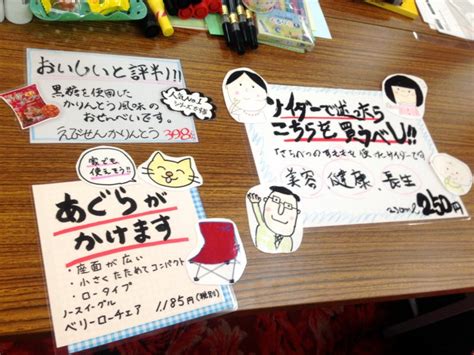 おいしいと評判!!
黒糖を使用した
かりんとう風味の
おせんべいです。
えびせんかりんとう 398円
人気No.1
シリーズです
サイダーで迷ったら
こちらを買うべし!!
美容 健康 長生
250円
家でも
使えそう!!
あぐらが
かけます
・座面が広い
・小さくたためてコンパクト
・ロータイプ
ノースイーグル
ベリーローチェア 1185円(税別)